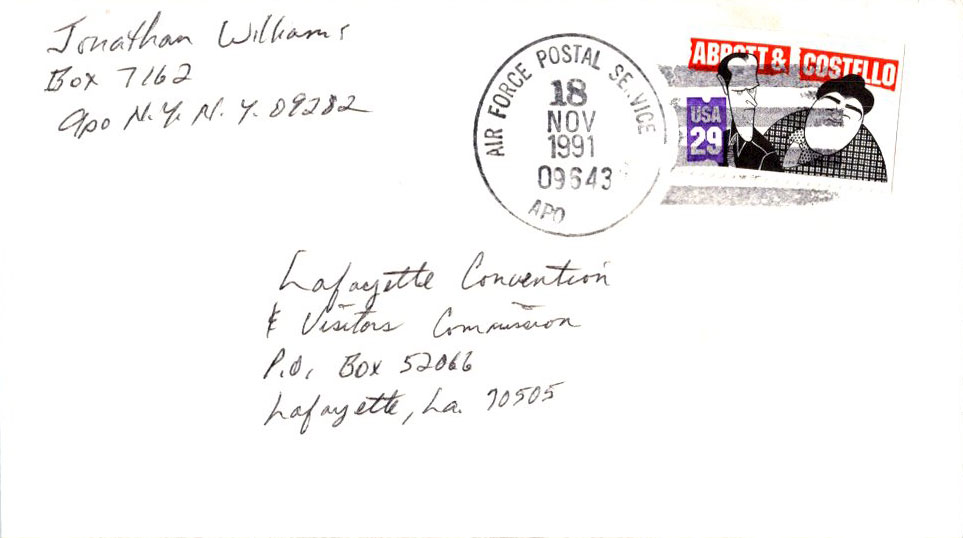 Jonathan Williams
Box 7162
Apo N.Y. N.Y. 09282
AIR FORCE POSTAL SERVICE
18
NOV
1991
09643
APO
ABBOTT & COSTELLO
USA
29
Lafayette Convention
& Visitors Commission
P.O. Box 52066
Lafayette, La. 70505